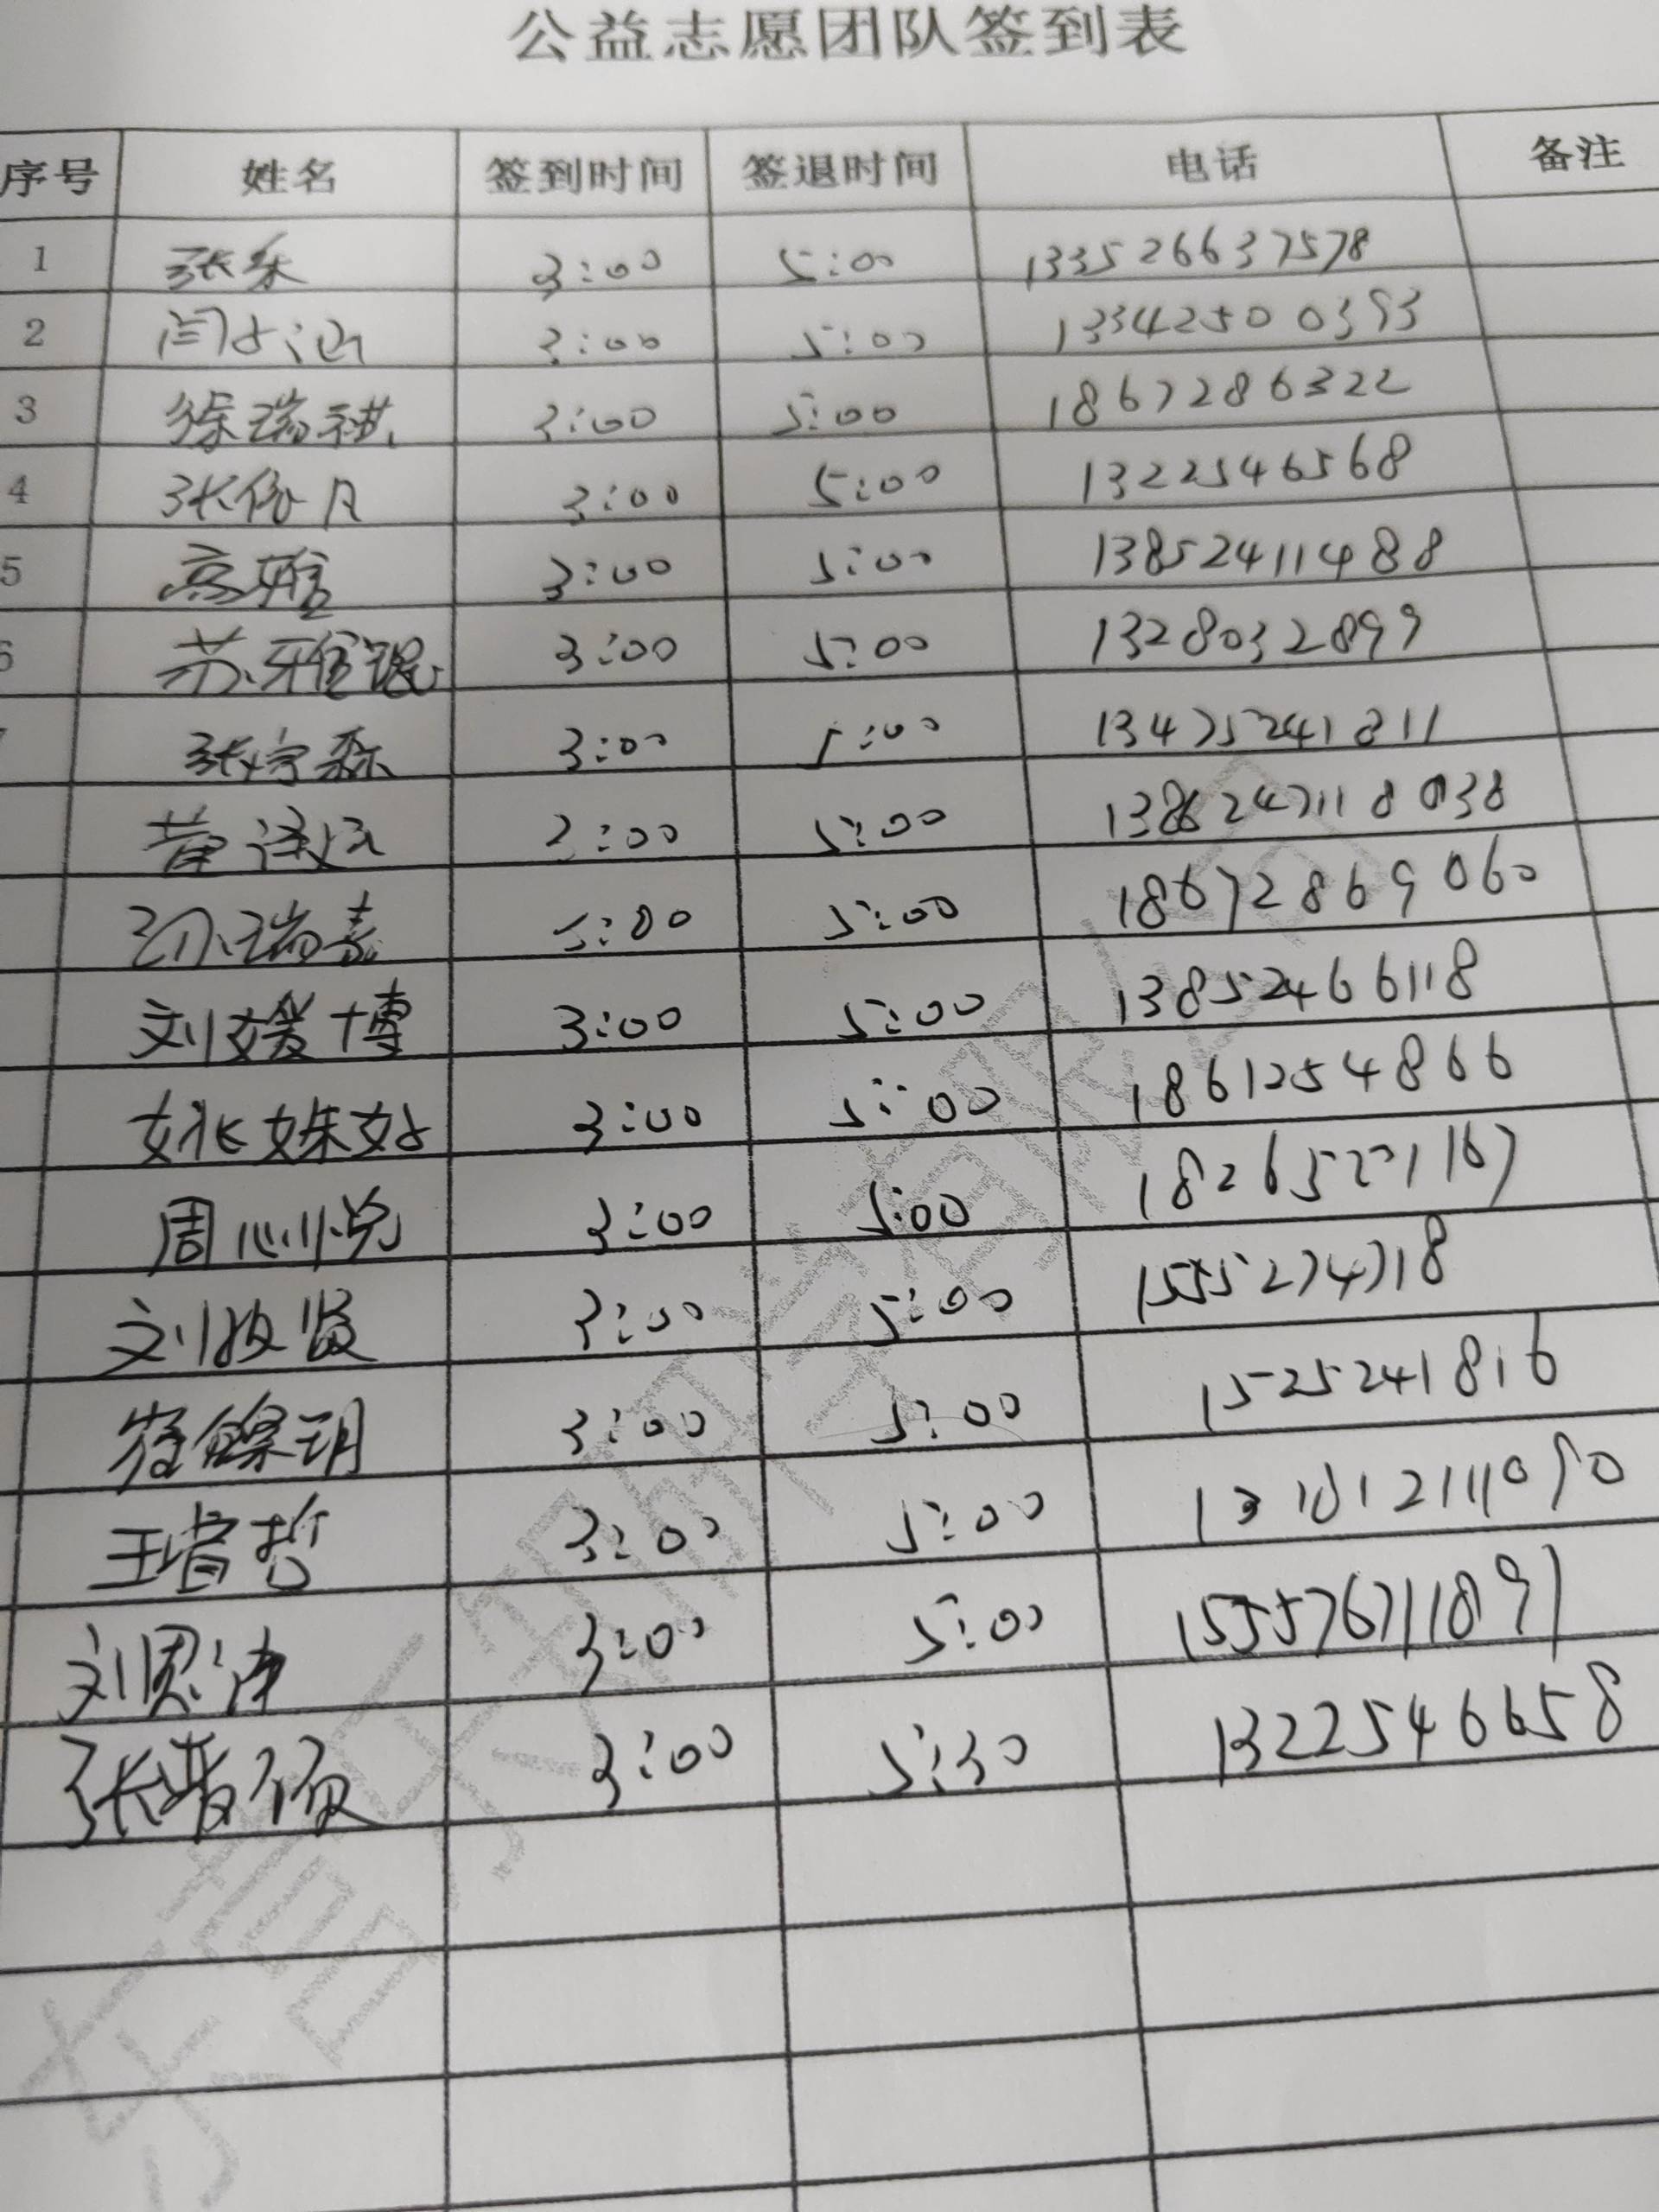 公益志愿团队签到表
序号 姓名 签到时间 签退时间 电话 备注
1 张乐 3:00 5:00 133526637578
2 3:00 5:00 13342500393
3 徐瑞祺 3:00 5:00 1867286322
4 张俊凡 3:00 5:00 1322546568
5 高雅 3:00 5:00 13852411488
6 苏雅锟 3:00 5:00 1328032899
张宇森 3:00 5:00 13475241811
黄 3:00 5:00
孙瑞嘉 5:00 5:00 18672869060
刘媛博 3:00 5:00 13852466118
姚姝妤 3:00 5:00 18612554866
周心悦 3:00 5:00
刘政贤 3:00 5:00 1555274718
3:00 5:00 1525241816
王睿哲 3:00 5:00
刘恩 3:00 5:00 155576711891
张 3:00 5:30 1322546658